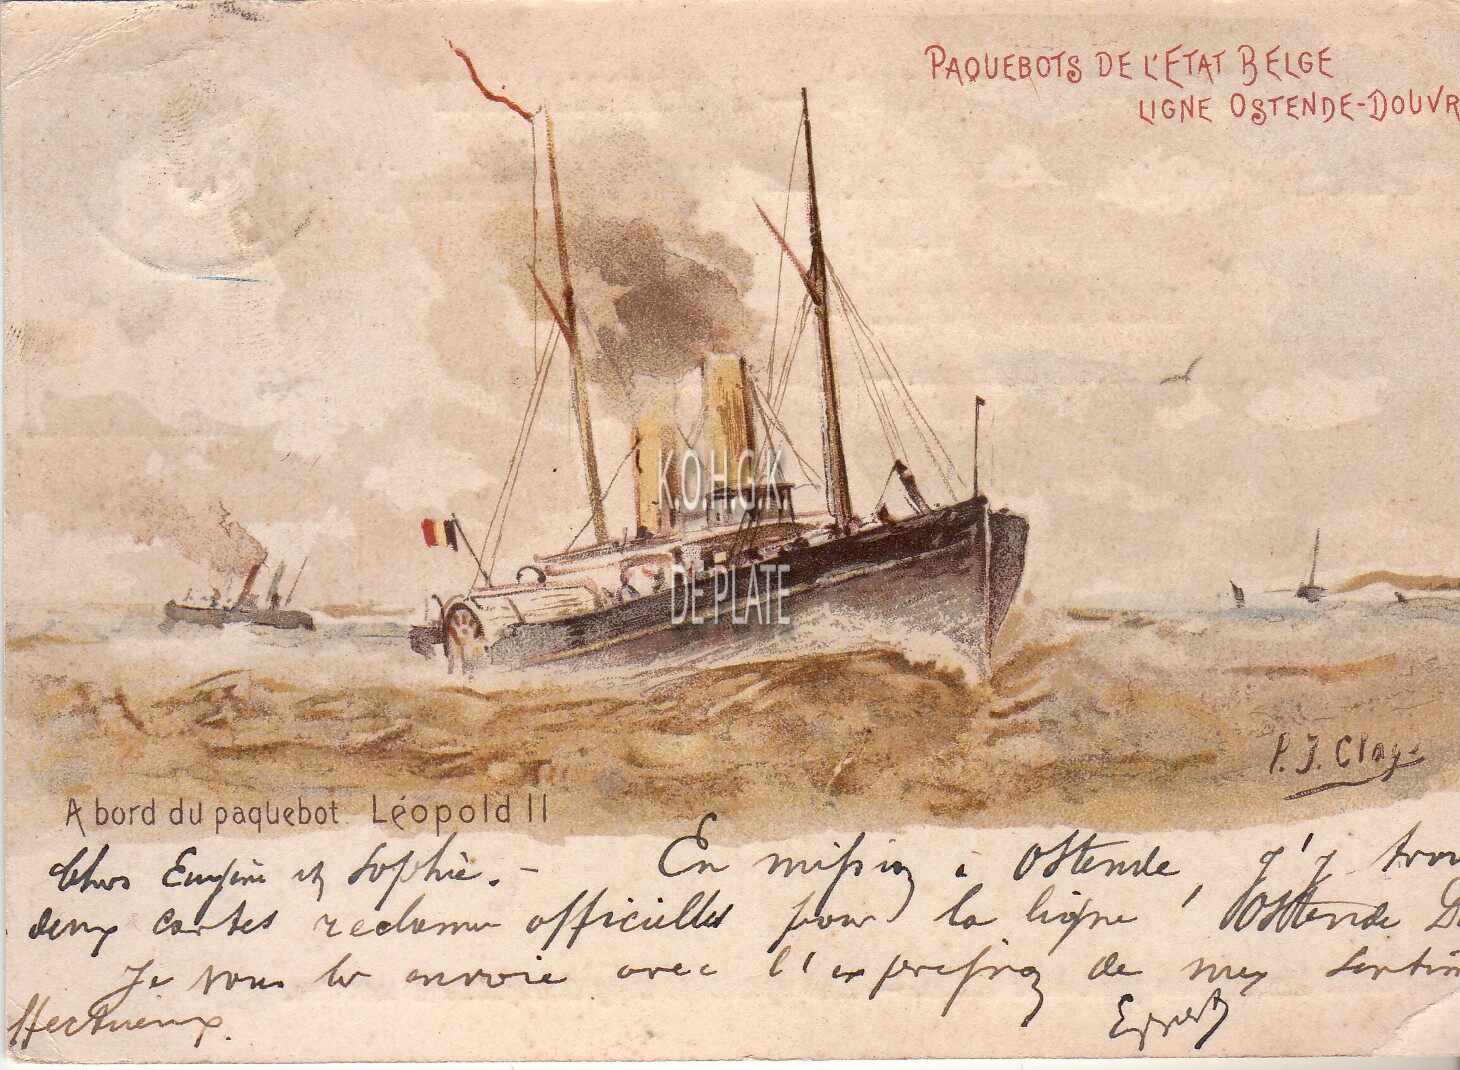 PAQUEBOTS DE L'ETAT BELGE
LIGNE OSTENDE-DOUVR
K.O.H.G.K.
DE PLATE
P. J. Clays
A bord du paquebot Léopold II
Chers Eugène et Sophie. - En mission à Ostende, j'y trou
deux cartes reclame officielles pour la ligne Ostende D
Je vous les envoie avec l'expression de mes sentim
ffectueux.